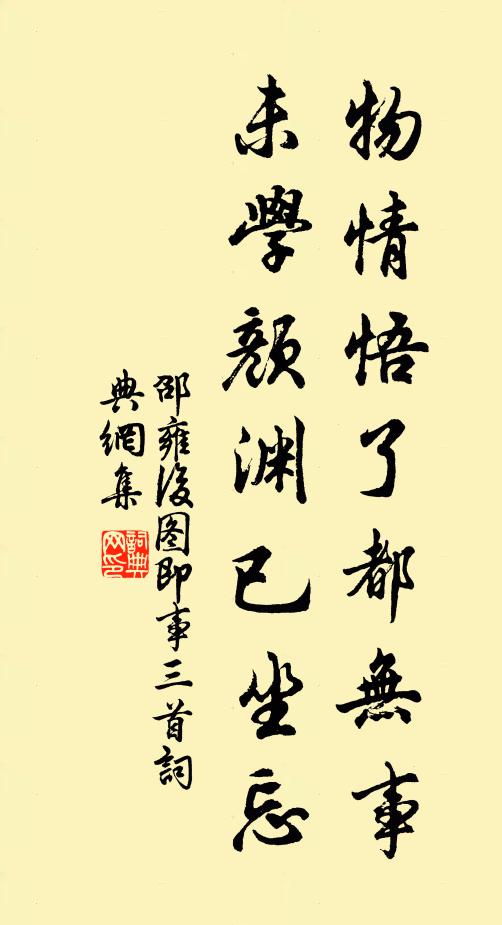 物情悟了都無事
未學顏渊已坐忘
邵雍後图即事三首詞
典網集
詞典
网印